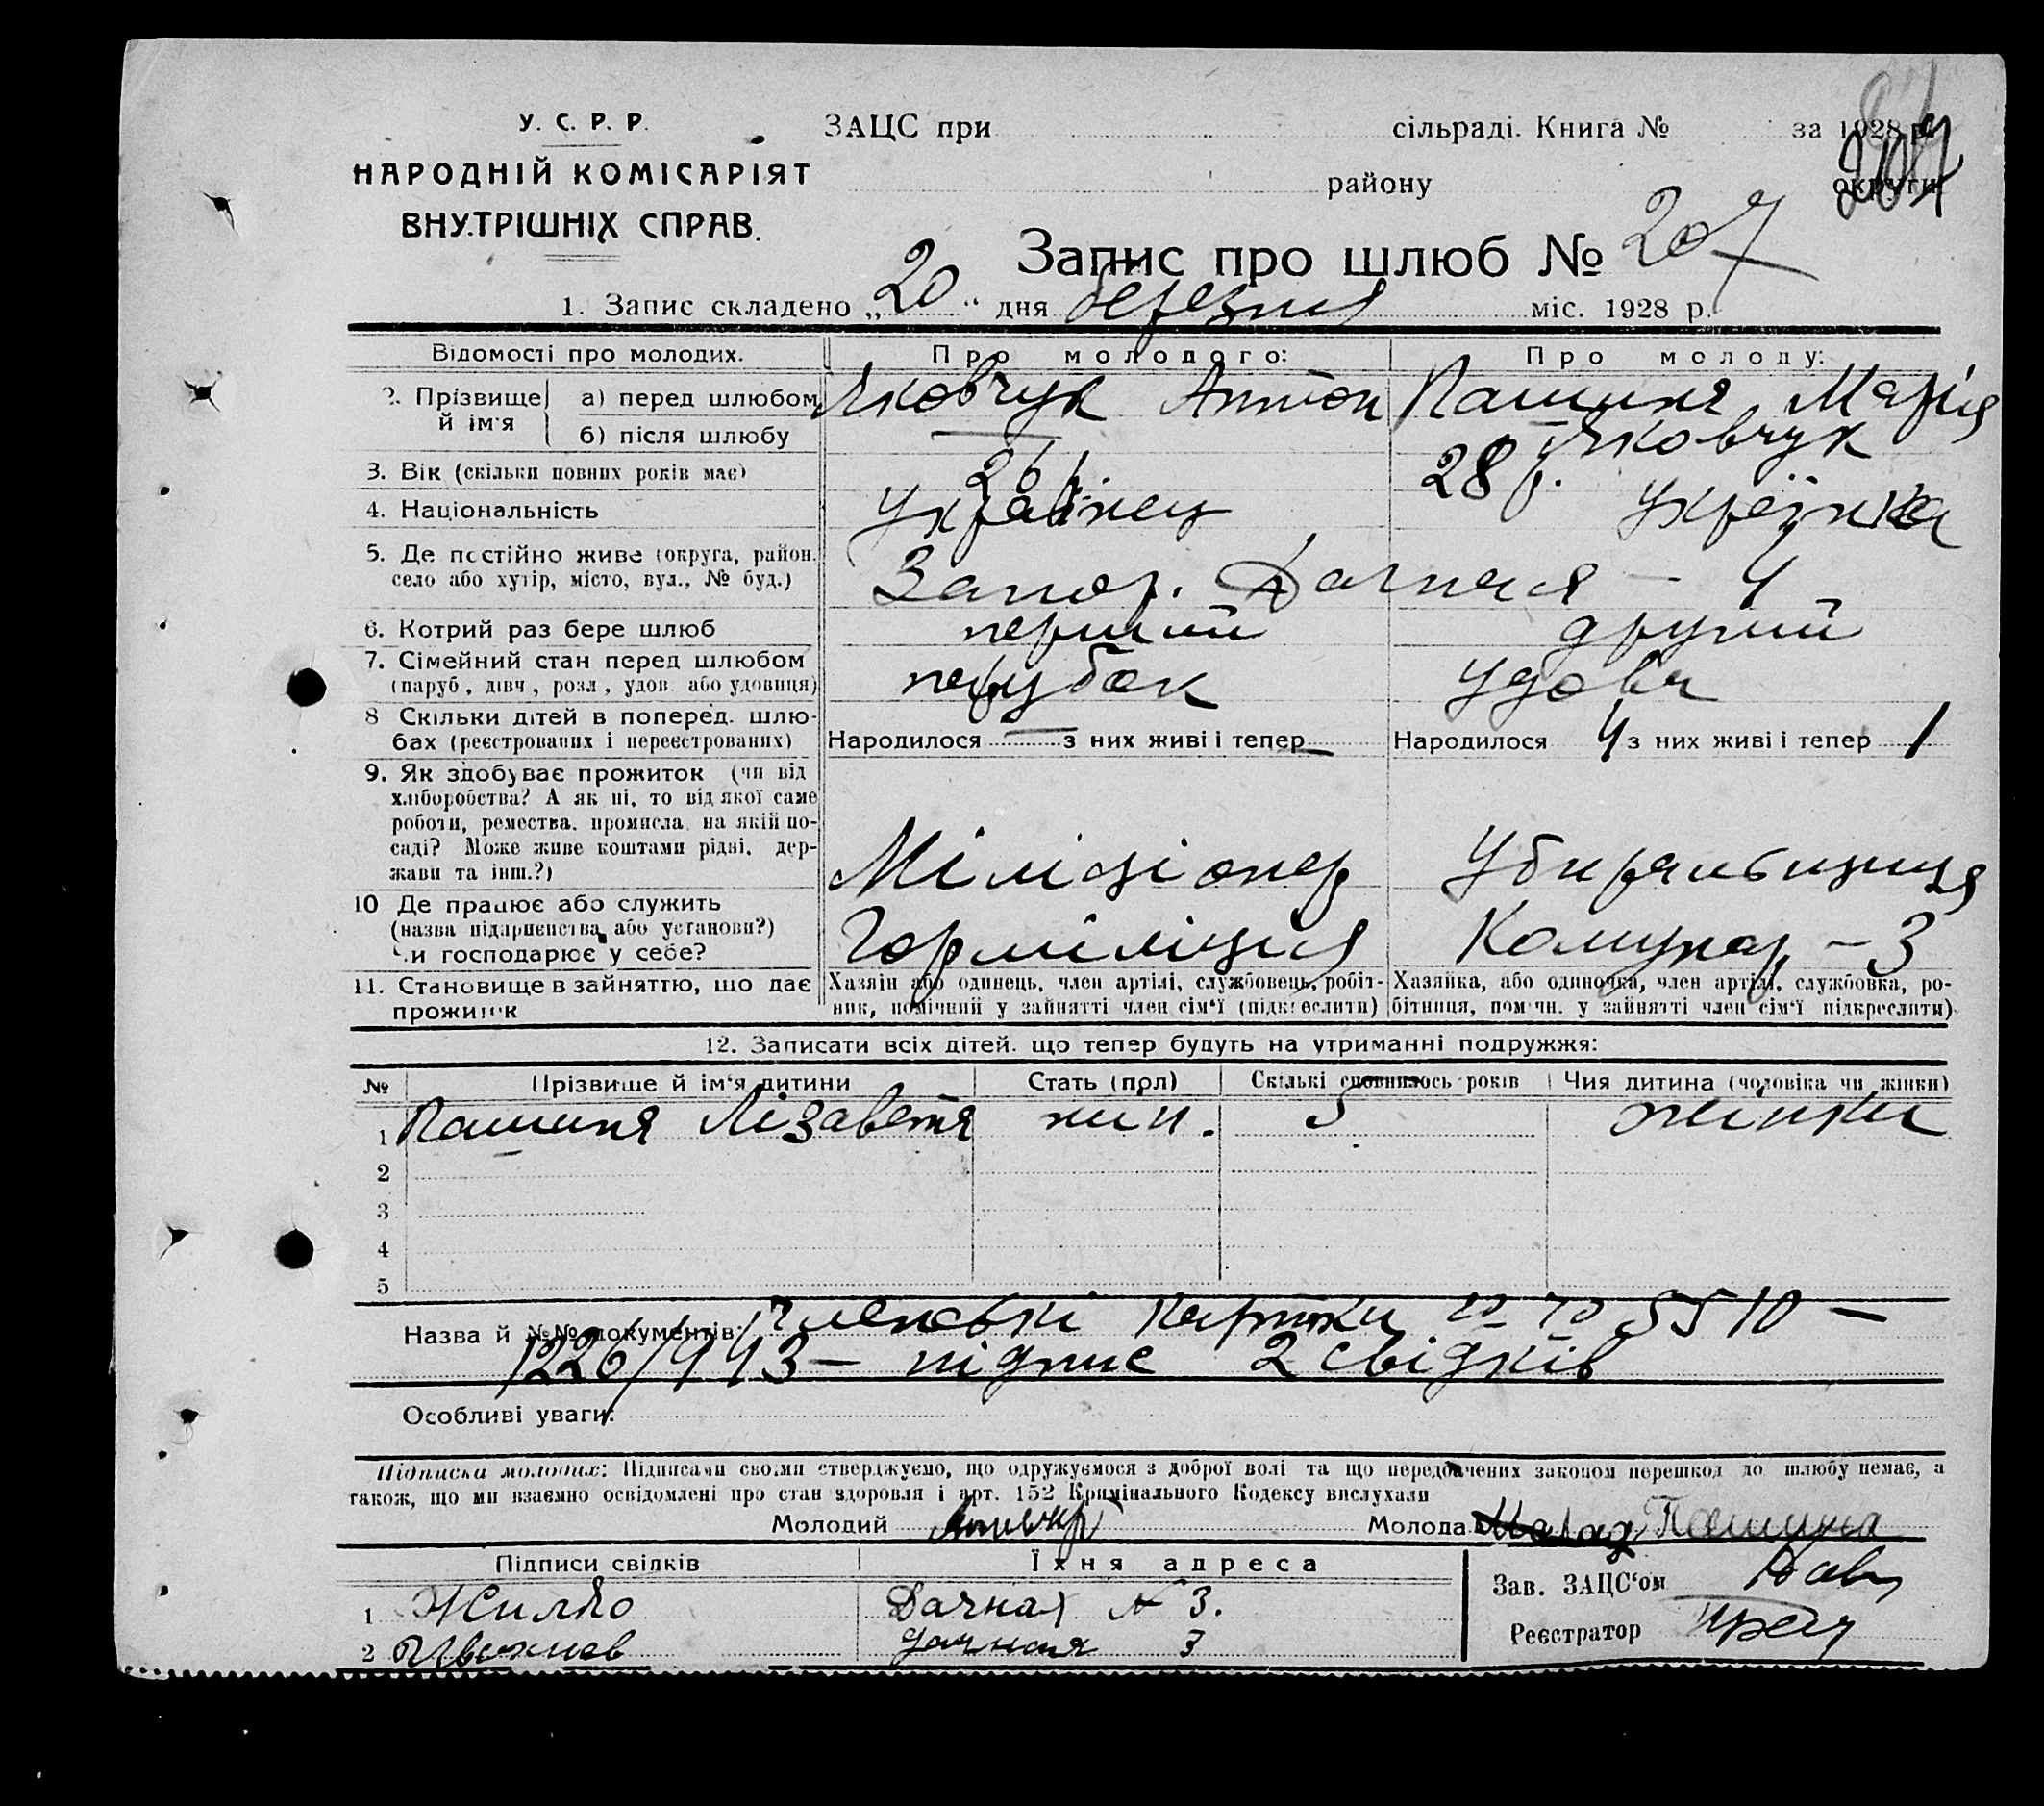 У. С. Р. Р.
НАРОДНІЙ КОМІСАРІЯТ
ВНУТРІШНІХ СПРАВ.
ЗАЦС при сільраді. Книга № за 1928 р.
району округи
207
Запис про шлюб № 207
1. Запис складено „20“ дня березня міс. 1928 р.
Відомості про молодих. Про молодого: Про молоду:
2. Прізвище й ім'я а) перед шлюбом Яковчук Антон Пашина Марія
б) після шлюбу — Яковчук
3. Вік (скільки повних років має) 26 28 р.
4. Національність Українец Українка
5. Де постійно живе (округа, район, село або хутір, місто, вул., № буд.) Запор. Дачная – 4
6. Котрий раз бере шлюб перший другий
7. Сімейний стан перед шлюбом (паруб., дівч., розл., удов. або удовиця) парубок удова
8 Скільки дітей в поперед. шлюбах (реєстрованих і нереєстрованих) Народилося — з них живі і тепер — Народилося 4 з них живі і тепер 1
9. Як здобуває прожиток (чи від хліборобства? А як ні, то від якої саме роботи, ремества, промисла, на якій посаді? Може живе коштами рідні, держави та інш.?) Міліціонер Убиральщиця
10 Де працює або служить (назва підприємства або установи?) Чи господарює у себе? Горміліція Комунар – 3
11. Становище в зайняттю, що дає прожиток Хазяїн або одинець, член артілі, службовець, робітник, помічний у зайнятті член сім'ї (підкреслити) Хазяйка, або одиночка, член артілі, службовка, робітниця, помічн. у зайнятті член сім'ї підкреслити)
12. Записати всіх дітей, що тепер будуть на утриманні подружжя:
№ Прізвище й ім'я дитини Стать (пол) Скількі сповнилось років Чия дитина (чоловіка чи жінки)
1 Пашиня Лізавета жін. 5 жінки
2
3
4
5
Назва й №№ документів: Членські картки 5510 —
1226/443 — підпис 2 свідків
Особливі уваги:
Підписка молодих: Підписами своїми стверджуємо, що одружуємося з доброї волі та що передбачених законом перешкод до шлюбу немає, а
також, що ми взаємно освідомлені про стан здоровля і арт. 152 Кримінального Кодексу вислухали
Молодий Молода Пашина
Підписи свідків Їхня адреса Зав. ЗАЦС'ом
1 Жилко Дачная № 3.
2 дачная 3 Реєстратор